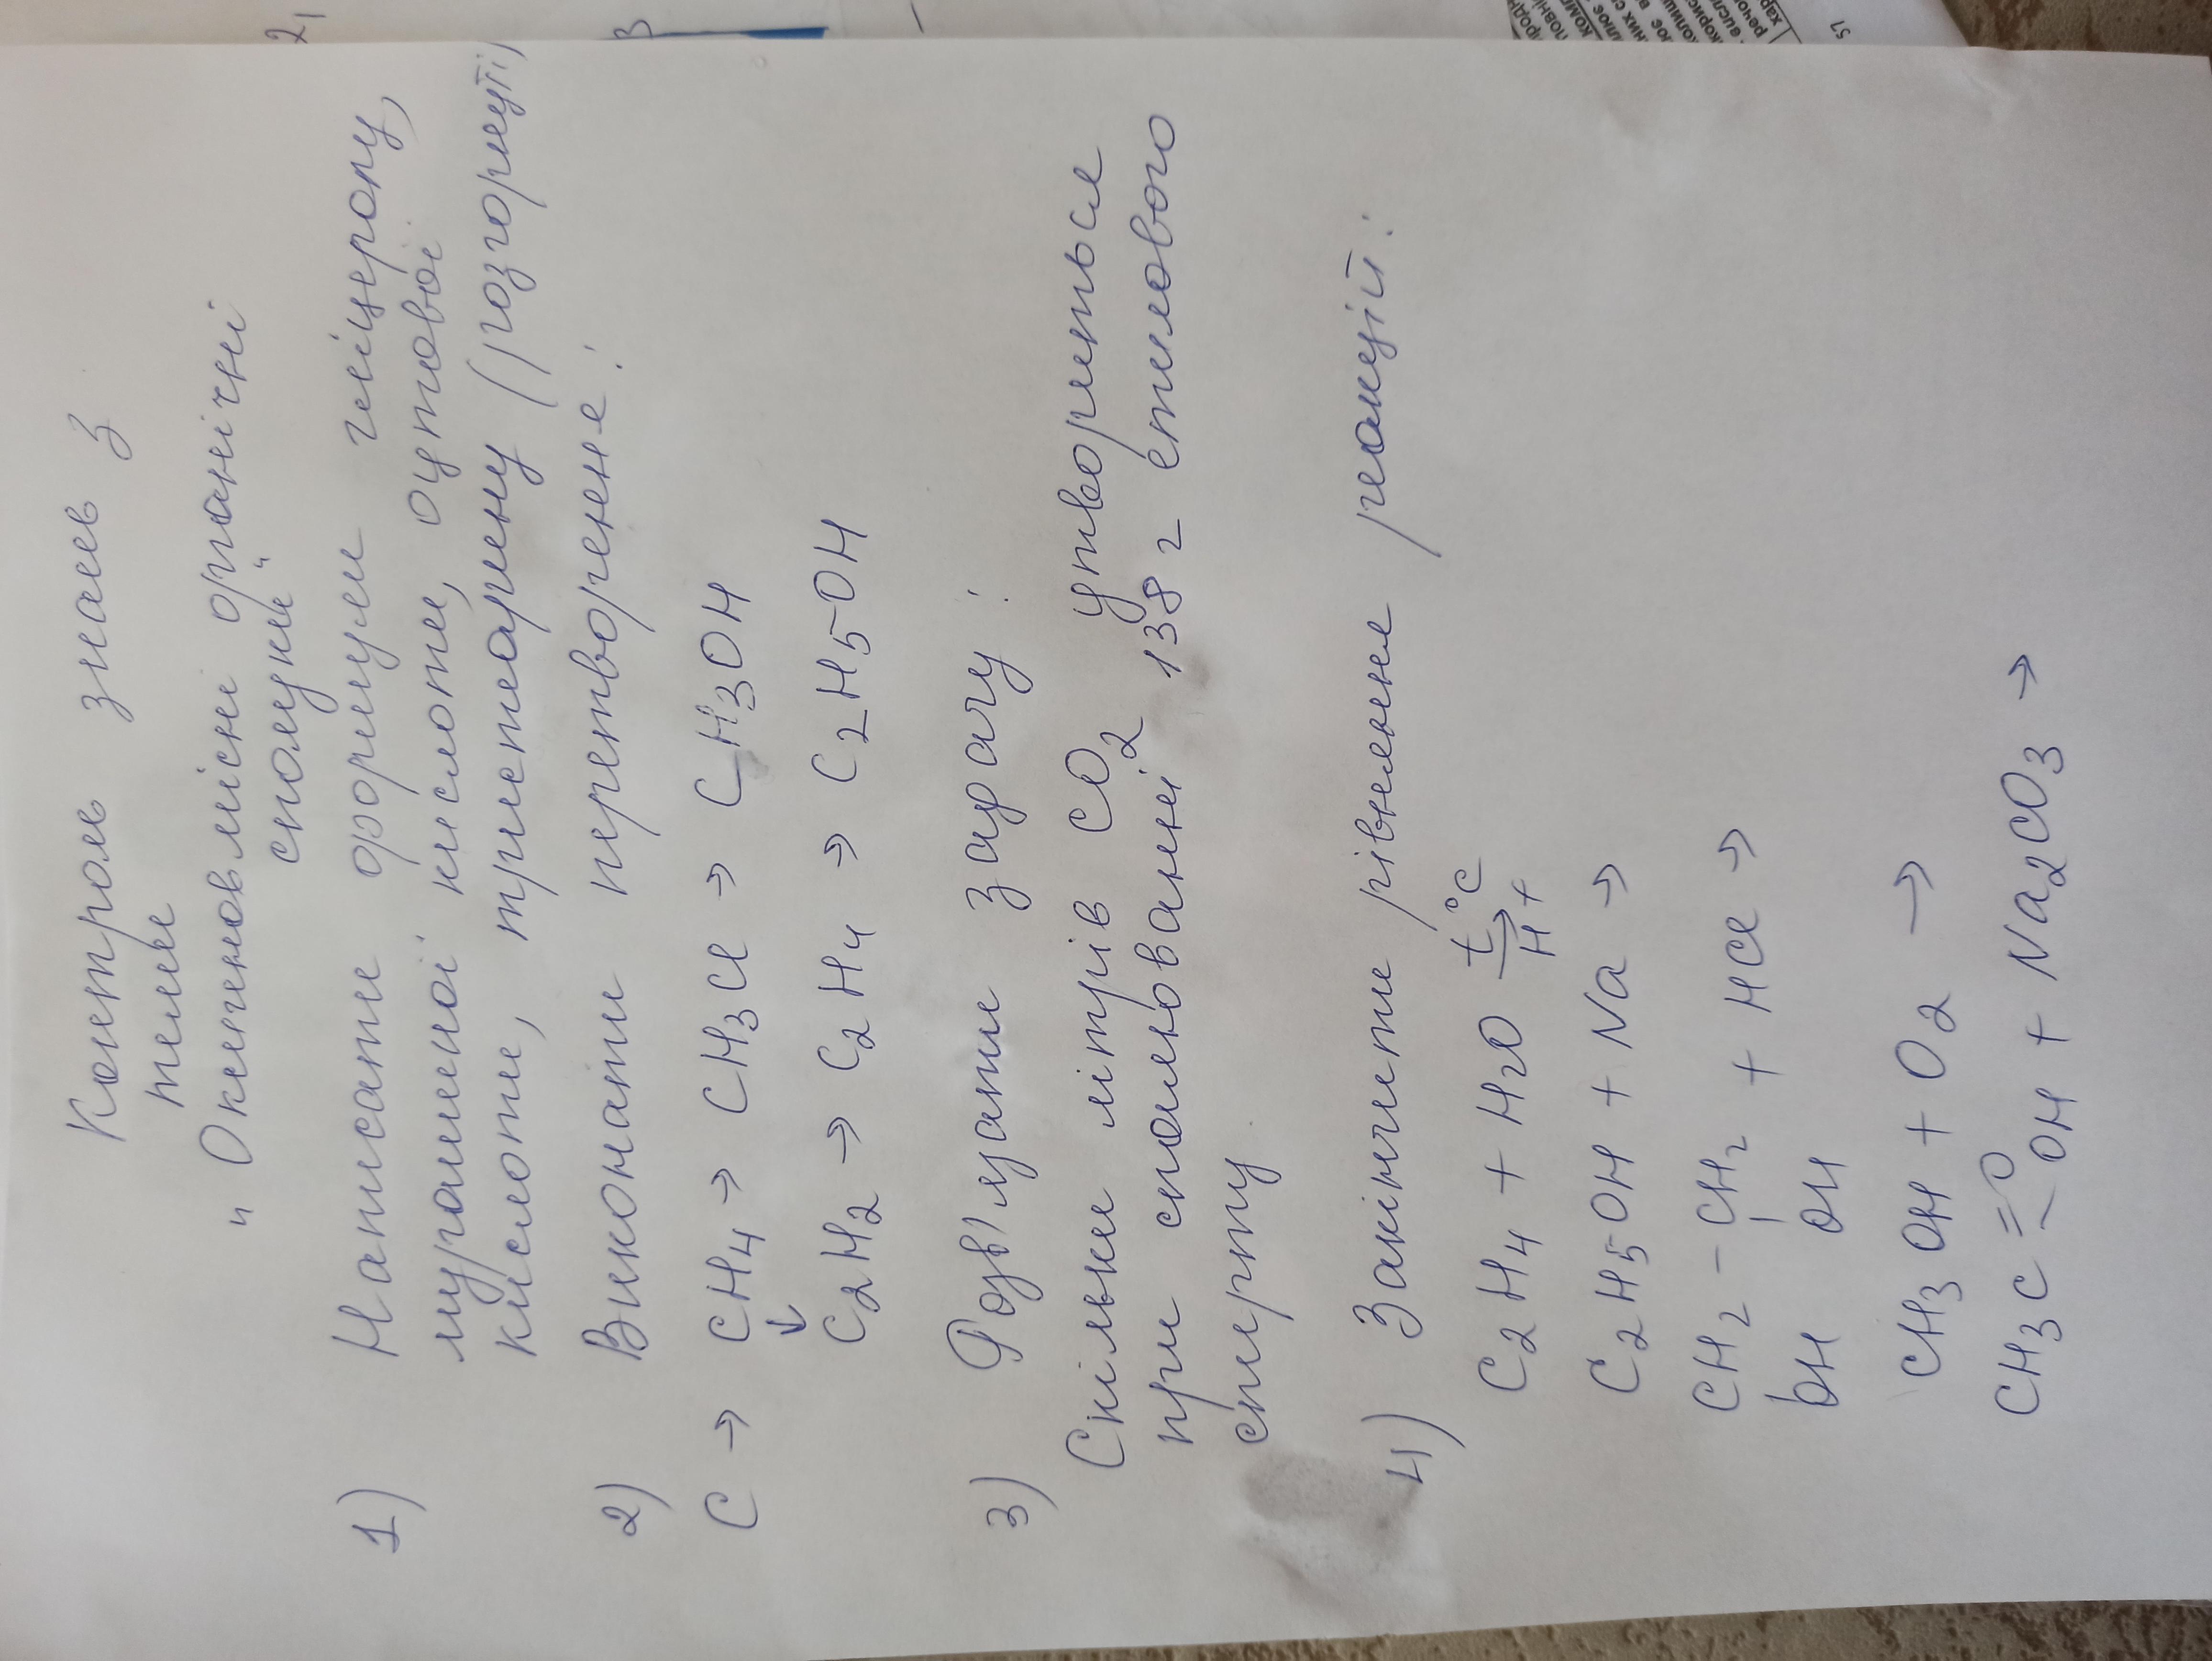 Контроль знань з
теми
„Оксигеновмісні органічні
сполуки"
1) Написати формули гліцеролу,
мурашиної кислоти, оцтової
кислоти, тристеарину (розгорнуті)
2) Виконати перетворення:
C → CH4 → CH3Cl → CH3OH
↓
C2H2 → C2H4 → C2H5OH
3) Розв'язати задачу:
Скільки літрів CO2 утвориться
при спалюванні 138 г етилового
спирту
4) Закінчити рівняння реакцій:
C2H4 + H2O t°C → H+
C2H5OH + Na →
CH2 - CH2 + HCl →
OH OH
CH3OH + O2 →
CH3C =O OH + Na2CO3 →